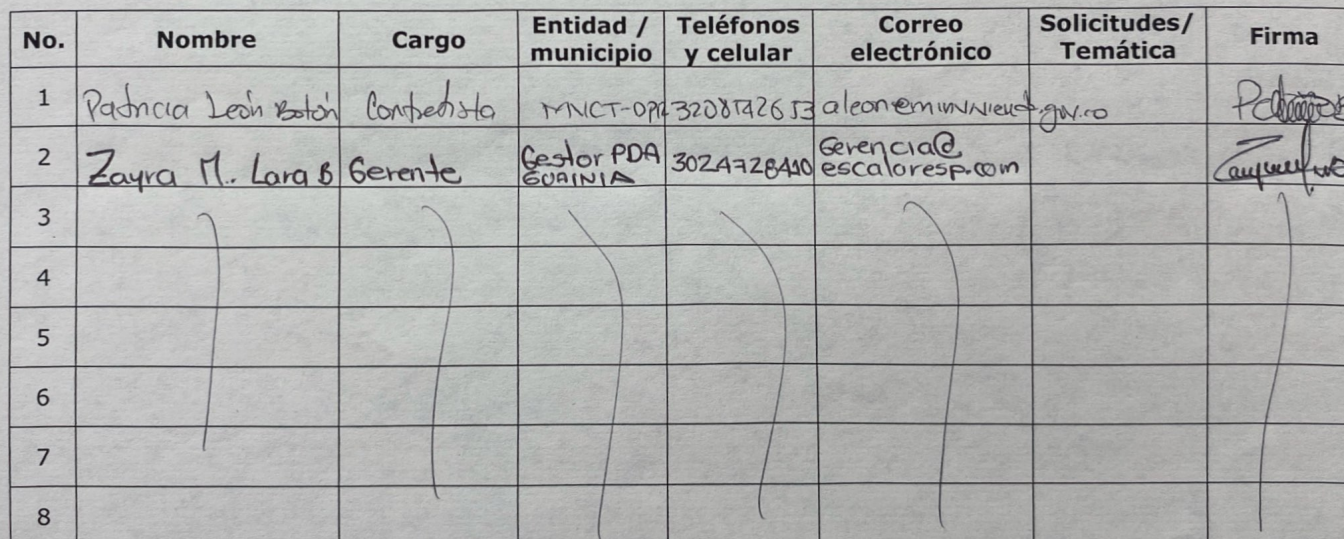 No. Nombre Cargo Entidad / municipio Teléfonos y celular Correo electrónico Solicitudes/ Temática Firma
1 Patricia León Botón Contratista 3208142653
2 Zayra M. Lara B Gerente Gestor PDA GUAINIA 3024728440 Gerencia@ escaloresp.com
3
4
5
6
7
8